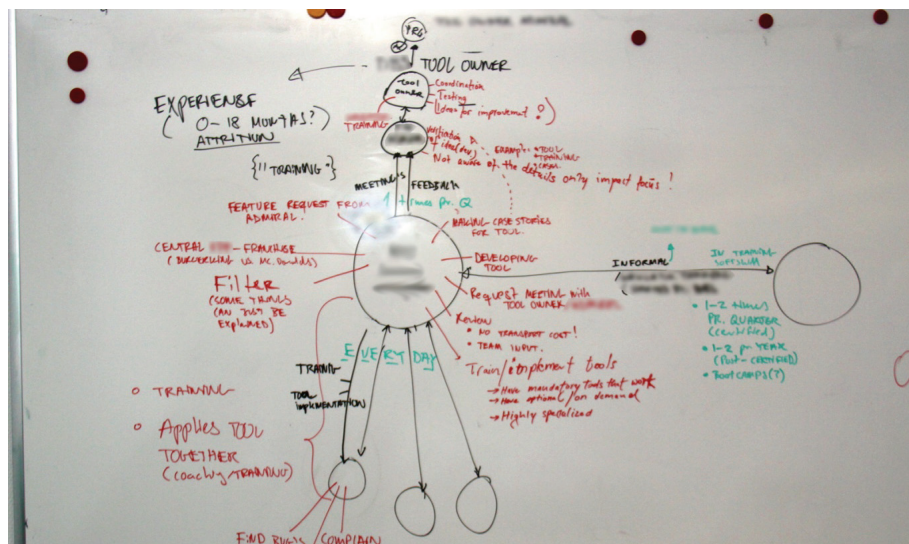 YRG
TOOL OWNER
TOOL
OWNER
Coordination
Testing
Ideas for improvement ?
TRAINING
EXPERIENSE
(0-18 MONTHS?)
ATTRITION
{"TRAINING"}
EXAMPLE:
TOOL
TRAINING
Not aware of the details only impact focus!
MEETINGS
FEEDBACK
1 + times pr. Q
FEATURE REQUEST FROM
ADMIRAL.
MAKING CASE STORIES
FOR TOOL.
CENTRAL
-FRANHISE
(BURGERKING vs Mc. Donalds)
Filter
(SOME THINGS
CAN JUST BE
EXPLAINED)
DEVELOPING
TOOL
Request MEETING with
TOOL OWNER
Review
• NO TRANSPORT COST!
• TEAM INPUT.
INFORMAL
IN TRAINING
• 1-2 times
PR. QUARTER
(CERTIFIED)
• 1-2 pr YEAR
(POST-CERTIFIED)
• BOOTCAMPS(?)
EVERY DAY
Train/implement tools
→ Have mandatory Tools that work
→ Have optional/on demand
→ Highly specialized
TRAINIG
TOOL
implementation
○ TRAINING
○ Applies TOOL
TOGETHER
(coaching/TRAINING)
FIND BUGS
COMPLAIN